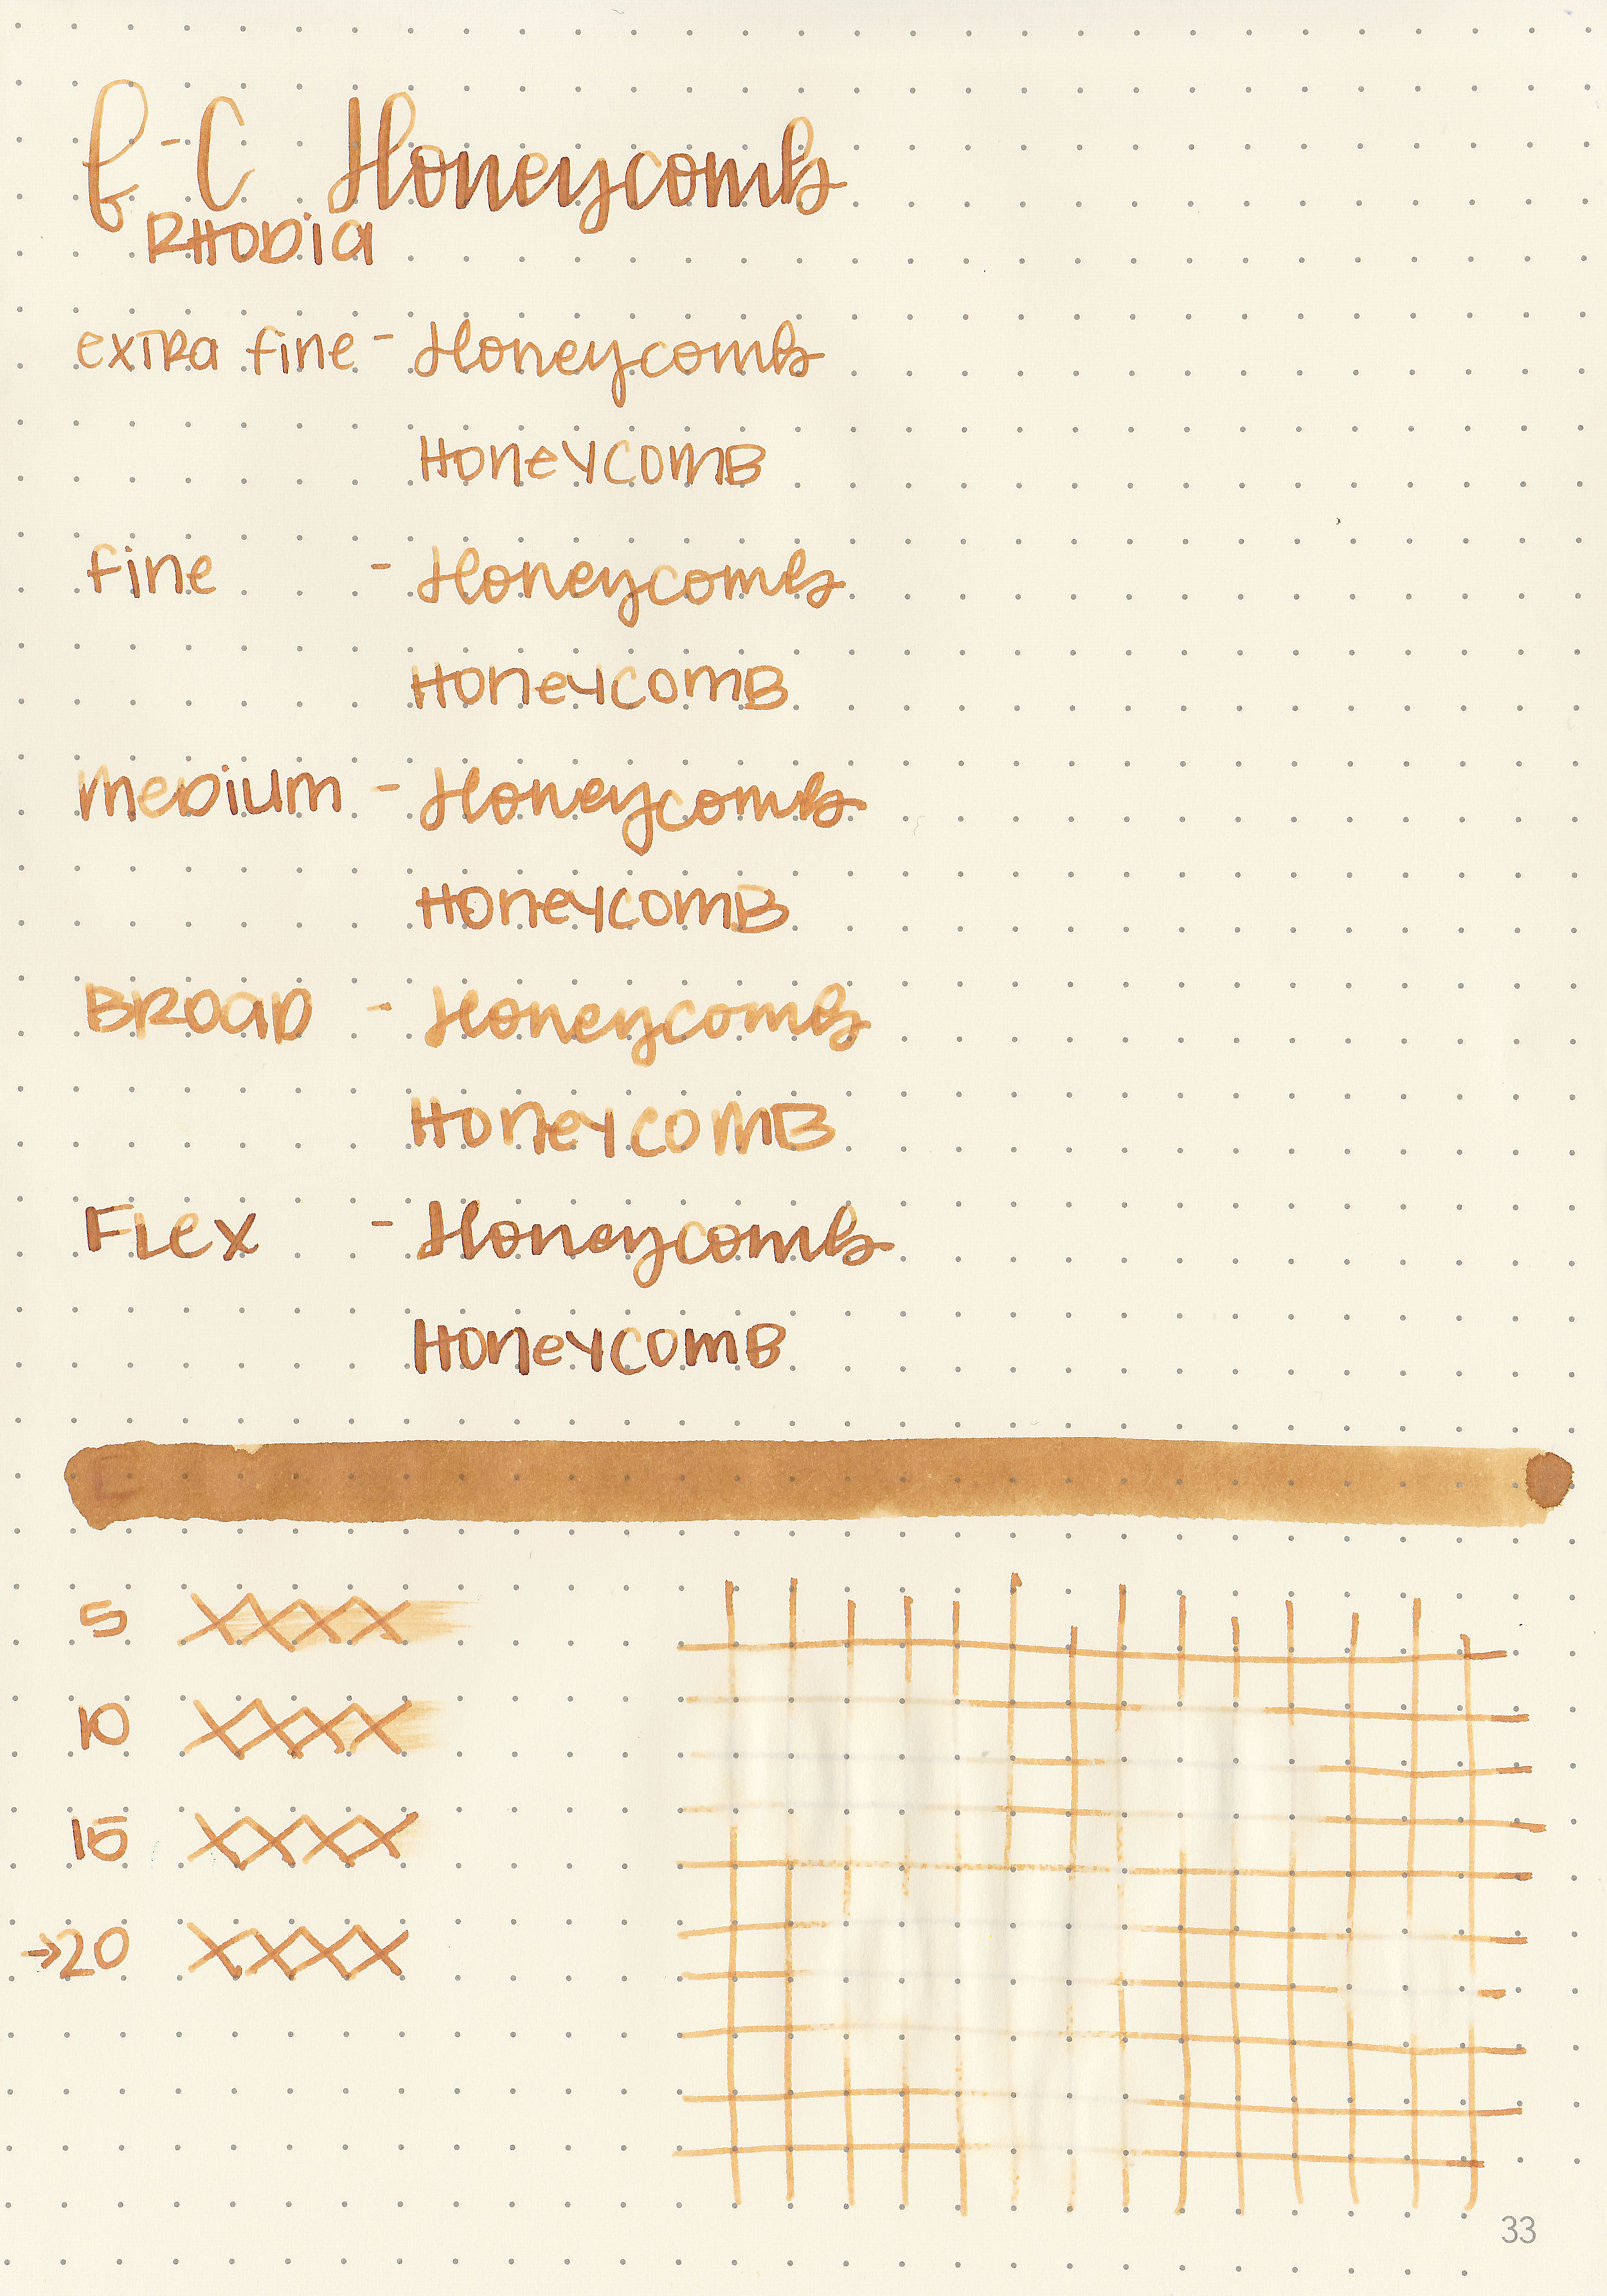 f-C Honeycomb
RHODia
exTRa fine - Honeycomb
HoneYcomB
fine - Honeycomb
HoneYcomB
meDium - Honeycomb
HoneYcomB
BROaD - Honeycomb
HoneYcomB
FLex - Honeycomb
HoneYcomB
5 XXXX
10 XXXX
15 XXXX
→20 XXXX
33